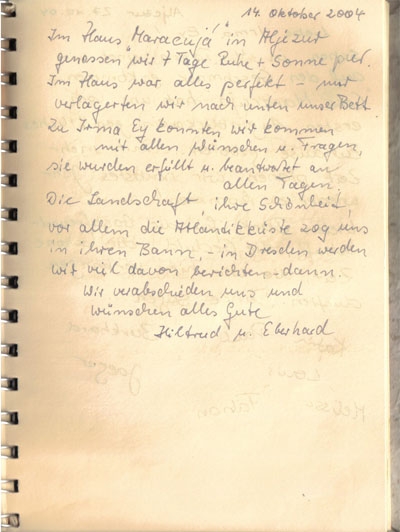 14. Oktober 2004
Im Haus "Maracujá" in Aljezur
genossen wir 7 Tage Ruhe + Sonne pur.
Im Haus war alles perfekt – nur
verlagerten wir nach unten unser Bett.
Zu Irma Ey konnten wir kommen
mit allen Wünschen u. Fragen,
sie wurden erfüllt u. beantwortet an
allen Tagen.
Die Landschaft, ihre Schönheit,
vor allem die Atlantikküste zog uns
in ihren Bann, – in Dresden werden
wir viel davon berichten – dann.
Wir verabschieden uns und
wünschen alles Gute
Hiltrud u. Eberhard